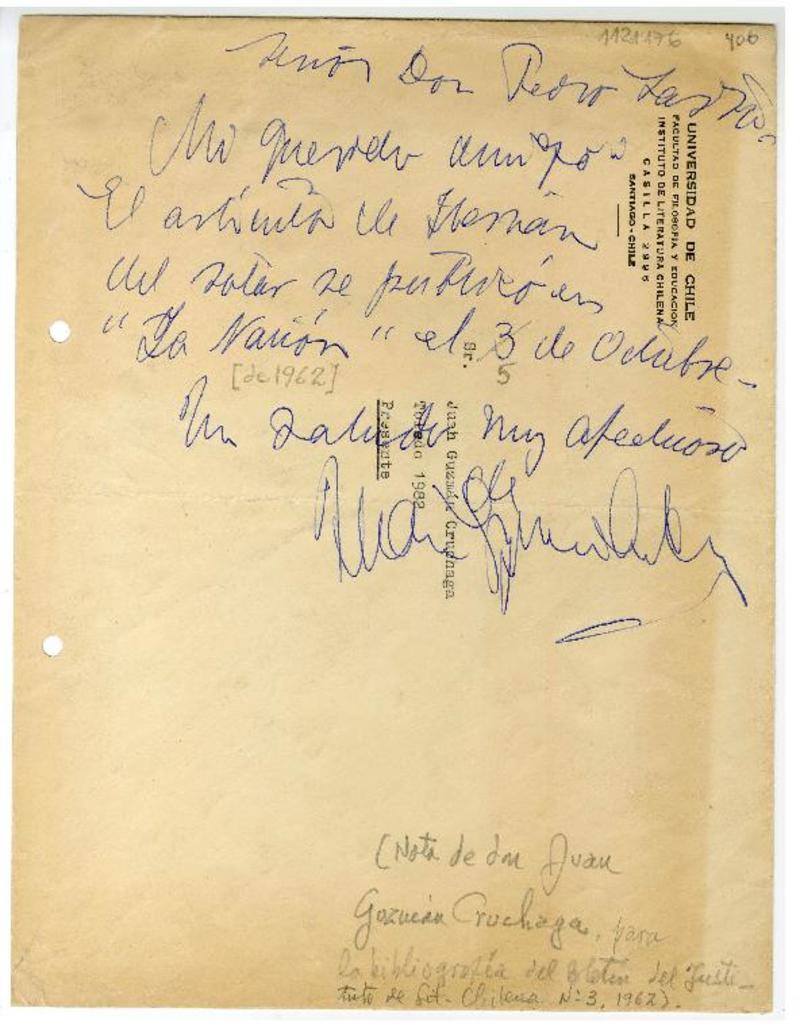 1121176 406
Señor Don Pedro Lastra.
Mi querido amigo:
El artículo de Hernán
del Solar se publicó en
"La Nación" el 3 de Octubre-
5
[de 1962]
Un saludo muy afectuoso
de
Juan Guzmán Cruchaga
UNIVERSIDAD DE CHILE
FACULTAD DE FILOSOFIA Y EDUCACION
INSTITUTO DE LITERATURA CHILENA
CASILLA 2995
SANTIAGO - CHILE
Sr.
Juan Guzmán Cruchaga
Toledo 1982
Presente
(Nota de don Juan
Guzmán Cruchaga, para
la bibliografía del Boletín del Insti-
tuto de Lit. Chilena Nº 3, 1962).